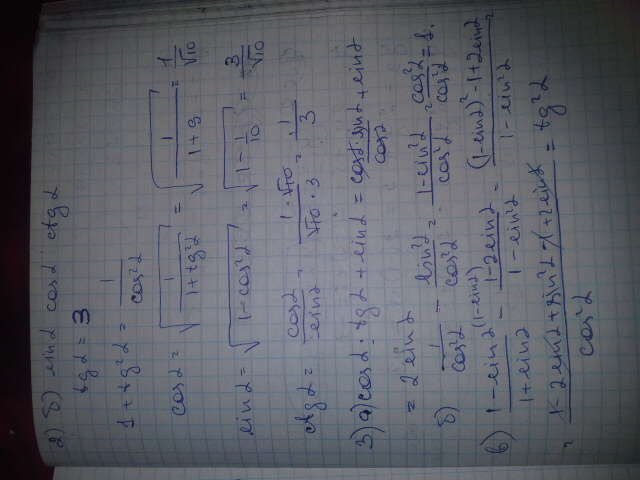 2) б) sinα cosα ctgα
tgα = 3
1 + tg²α = 1/cos²α
cosα = √(1/(1+tg²α)) = √(1/(1+9)) = 1/√10
sinα = √(1-cos²α) = √(1-1/10) = 3/√10
ctgα = cosα/sinα = (1·√10)/(√10·3) = 1/3
3) а) cosα · tgα + sinα = (cosα·sinα)/cosα + sinα
= 2 sinα
б) 1/cos²α - sin²α/cos²α = (1-sin²α)/cos²α = cos²α/cos²α = 1.
в) (1-sinα)^(1-sinα)/(1+sinα) - (1-2sinα)/(1-sin²α) = ((1-sinα)²-1+2sinα)/(1-sin²α)
= (1-2sinα+sin²α-1+2sinα)/cos²α = tg²α